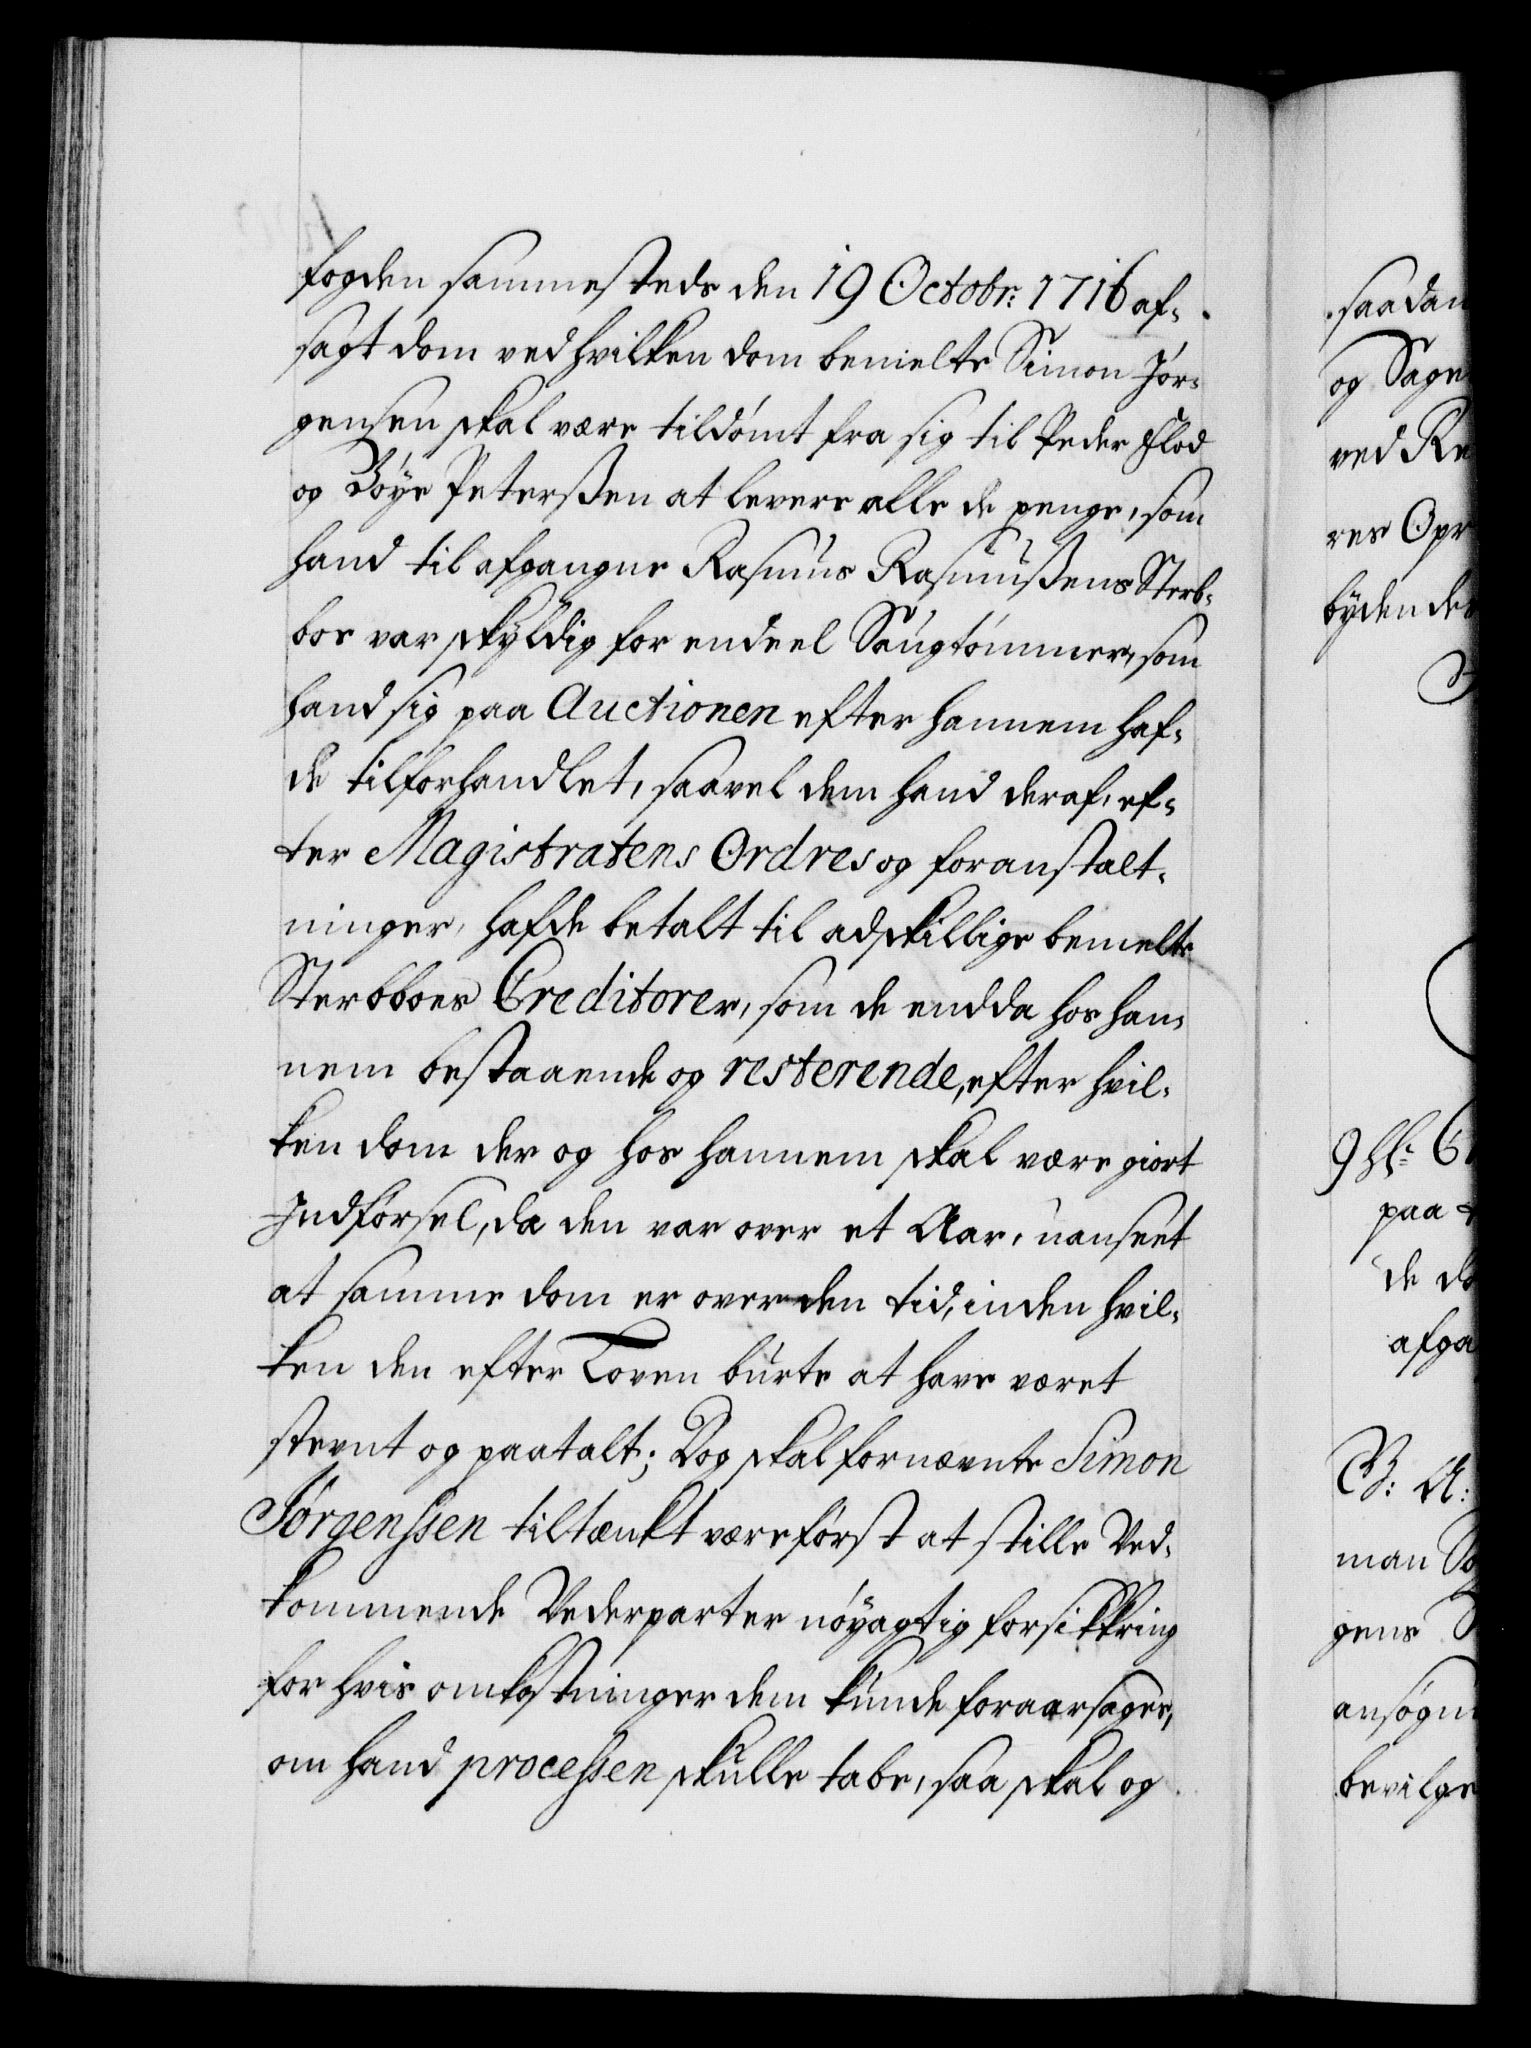 fogden sammesteds den 19 Octobr: 1716 af-
sagt dom ved hvilken dom bemelte Simon Jør-
gensen skal være tildømt fra sig til Peder Flod
og Bøye Peterssen at levere alle de penge, som
hand til afgangne Rasmus Rasmussens Sterb-
boe var skyldig for endeel Saugtømmer, som
hand sig paa Auctionen efter hannem haf-
de tilforhandlet, saavel dem hand deraf, ef-
ter Magistratens Ordres og foranstalt-
ninger, hafde betalt til adskillige bemelte
Sterbboes Creditorer, som de endda hos han-
nem bestaaende og resterende, efter hvil-
ken dom der og hos hannem skal være giort
Indførsel, da den var over et Aar, uanseet
at samme dom er over den tid, inden hvil-
ken den efter Loven burte at have været
stevnt og paatalt; Dog skal fornævnte Simon
Jørgenssen tiltænkt være først at stille Ved-
kommende Vederparter nøyagtig forsikkring
for hvis omkostninger dem kunde foraarsages,
om hand processen skulle tabe, saa skal og
saadan
og Sage
ved Re
res Opr
byden de
paa
de do
afga
B: A:
man So
gens
ansøgn
bevilge